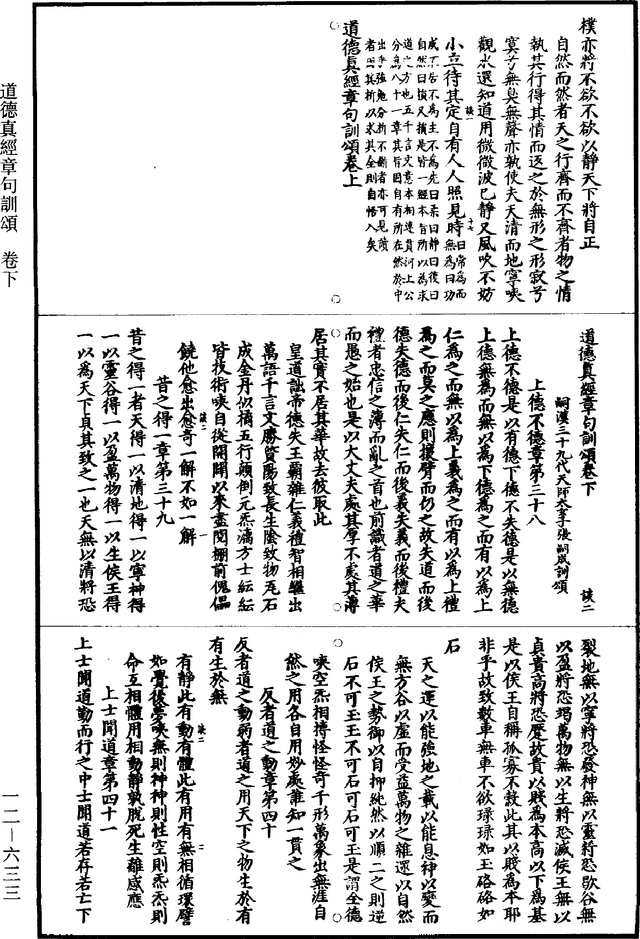 樸亦將不欲不欲以靜天下將自正
自然而然者天之行齊而不齊者物之情
執其行得其情而返之於無形之形寂兮
寞兮無臭無聲亦孰使夫天清而地寧唉
觀水還知道用微微波已靜又風吹不妨
小立待其定自有人人照見時
道德真經章句訓頌卷上
道德真經章句訓頌卷下
嗣漢三十九代天師太玄子張嗣成訓頌
上德不德章第三十八
上德不德是以有德下德不失德是以無德
上德無為而無以為下德為之而有以為上
仁為之而無以為上義為之而有以為上禮
為之而莫之應則攘臂而仍之故失道而後
德失德而後仁失仁而後義失義而後禮夫
禮者忠信之薄而亂之首也前識者道之華
而愚之始也是以大丈夫處其厚不處其薄
居其實不居其華故去彼取此
皇道詘帝德失王霸雜仁義禮智相繼出
萬語千言文勝質陽致長生陰致物瓦石
成金丹似橘五行顛倒元炁漓方士紜紜
皆技術唉自從開闢以來盡閱棚前傀儡
饒他愈出愈奇一解不如一解
昔之得一章第三十九
昔之得一者天得一以清地得一以寧神得
一以靈谷得一以盈萬物得一以生侯王得
一以為天下貞其致之一也天無以清將恐
裂地無以寧將恐發神無以靈將恐歇谷無
以盈將恐竭萬物無以生將恐滅侯王無以
貞貴高將恐蹷故貴以賤為本高以下為基
是以侯王自稱孤寡不穀此其以賤為本耶
非乎故致數車無車不欲琭琭如玉硌硌如
石
天之運以能強地之載以能息神以變而
無方谷以虛而受益萬物之雜還以自然
侯王之勢御以自抑純然以順二之則逆
石不可玉玉不可石可石可玉是謂全德
唉空炁相搏怪怪奇千形萬象出無涯自
然之用各自用妙處誰知一貫之
反者道之動章第四十
反者道之動弱者道之用天下之物生於有
有生於無
有靜此有動有體此有用有無相循環譬
如覺後夢唉無則神神則性空則炁炁則
命互相體用相動靜孰脫死生離感應
上士聞道章第四十一
上士聞道動而行之中士聞道若存若亡下
道德真經章句訓頌　卷下
一二—六三三